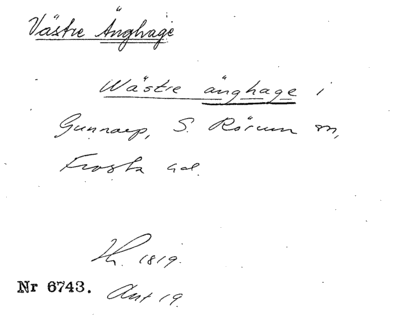 Västre Änghage
Wästre änghage i
Gunnarp, S. Rörum sn,
Frosta hd.
1819.
Nr 6743. Avt 19.